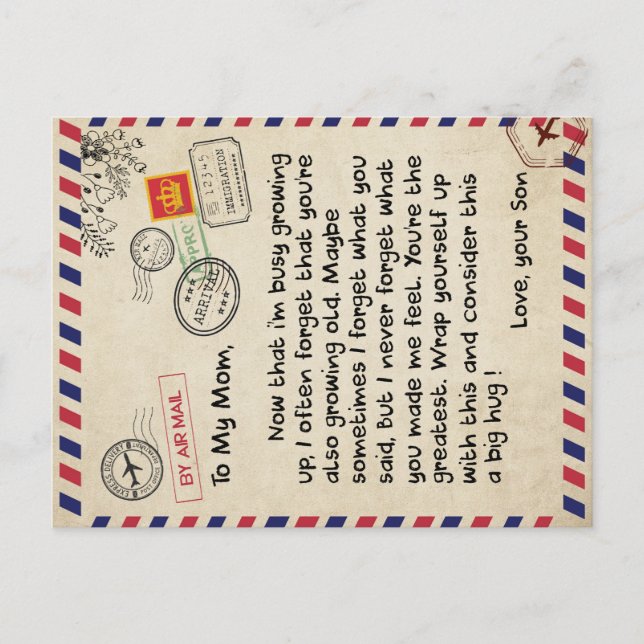 EXPRESS DELIVERY
POST OFFICE
BY AIR MAIL
ARRIVAL
IMMIGRATION
12345
To My Mom,
Now that i'm busy growing
up, I often forget that you're
also growing old. Maybe
sometimes I forget what you
said, But I never forget what
you made me feel. You're the
greatest. Wrap yourself up
with this and consider this
a big hug !
Love, your Son